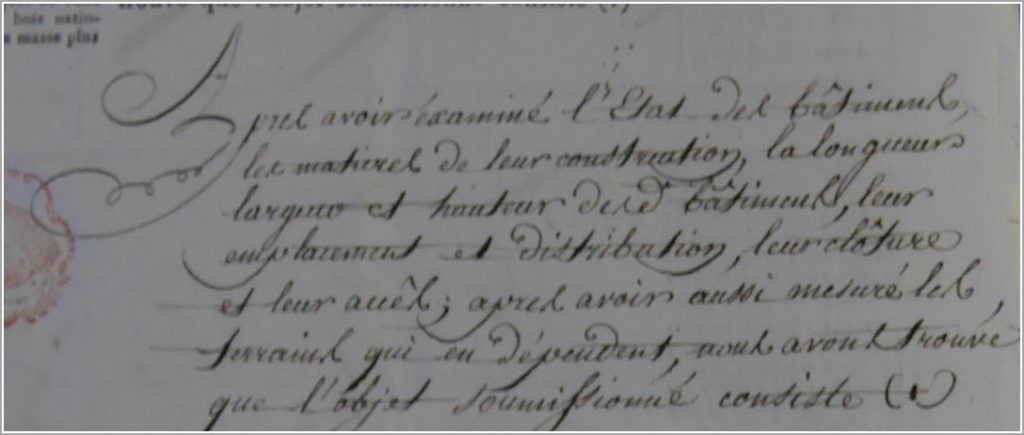 bois natio-
masse plus
Après avoir éxaminé l'Etat des bâtimens,
les matieres de leur construction, la longueur
largeur et hauteur des d. bâtimens, leur
emplacement et distribution, leur clôture
et leur accês; après avoir aussi mesuré les
terrains qui en dépendent, nous avons trouvé
que l'objet soumissionné consiste (1)